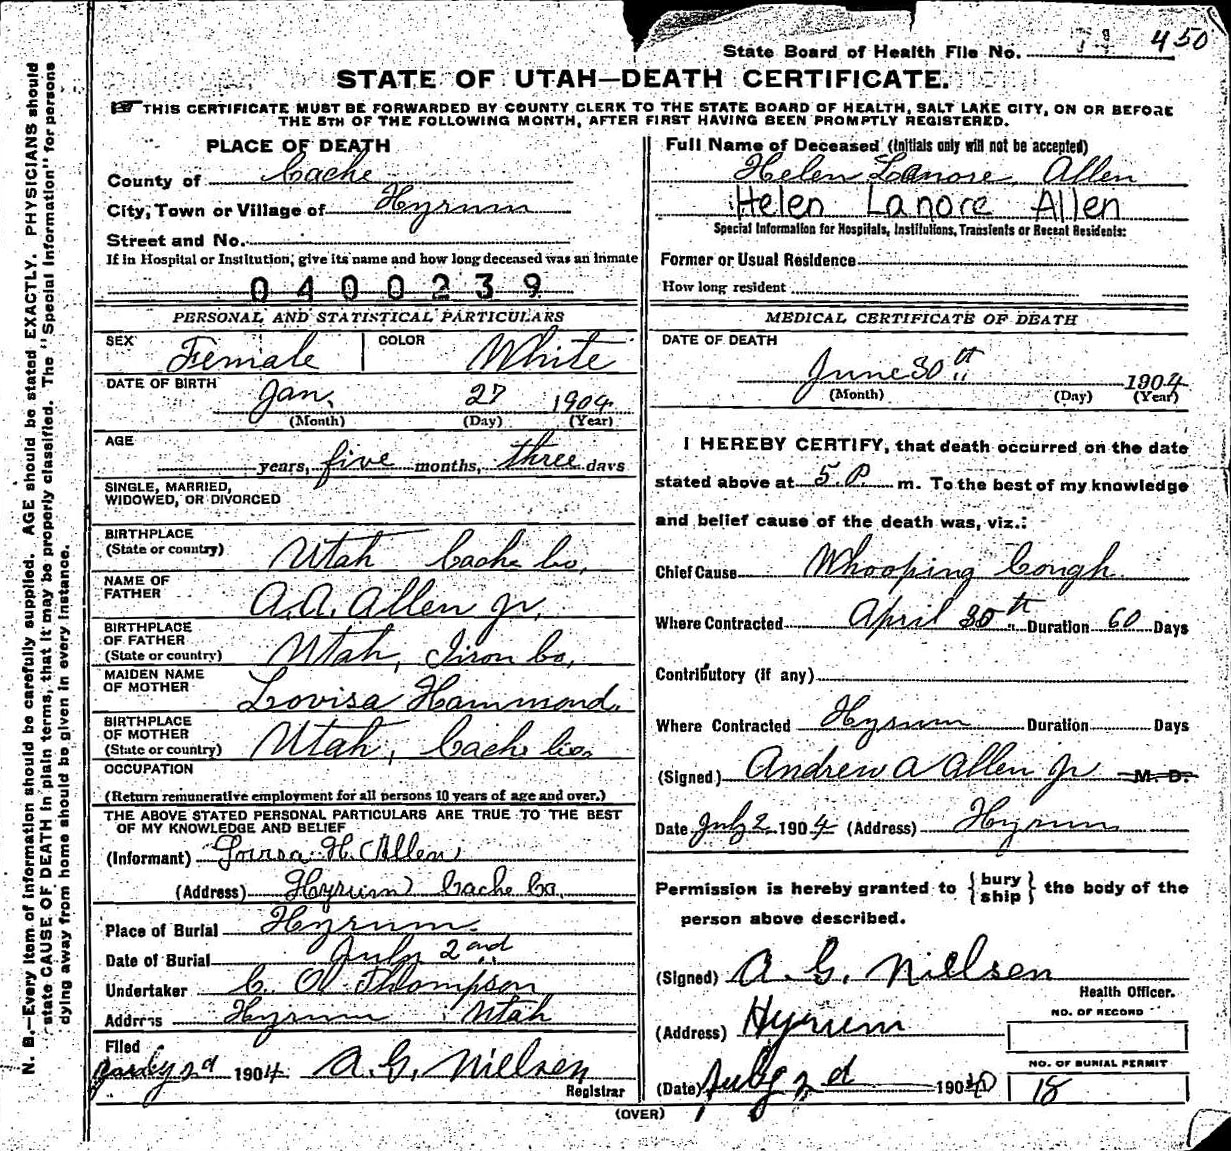 State Board of Health File No. 450
STATE OF UTAH—DEATH CERTIFICATE.
THIS CERTIFICATE MUST BE FORWARDED BY COUNTY CLERK TO THE STATE BOARD OF HEALTH, SALT LAKE CITY, ON OR BEFORE
THE 5TH OF THE FOLLOWING MONTH, AFTER FIRST HAVING BEEN PROMPTLY REGISTERED.
PLACE OF DEATH
County of Cache
City, Town or Village of Hyrum
Street and No.
If in Hospital or Institution, give its name and how long deceased was an inmate
0400239
PERSONAL AND STATISTICAL PARTICULARS
SEX Female COLOR White
DATE OF BIRTH
Jan. 27 1904
(Month) (Day) (Year)
AGE
years, five months, three days
SINGLE, MARRIED,
WIDOWED, OR DIVORCED
BIRTHPLACE
(State or country) Utah Cache Co.
NAME OF
FATHER A.A. Allen Jr.
BIRTHPLACE
OF FATHER
(State or country) Utah, Iron Co.
MAIDEN NAME
OF MOTHER Lovisa Hammond.
BIRTHPLACE
OF MOTHER
(State or country) Utah, Cache Co.
OCCUPATION
(Return remunerative employment for all persons 10 years of age and over.)
THE ABOVE STATED PERSONAL PARTICULARS ARE TRUE TO THE BEST
OF MY KNOWLEDGE AND BELIEF
(Informant) Lovisa H. Allen
(Address) Hyrum Cache Co.
Place of Burial Hyrum.
Date of Burial July 2nd
Undertaker C. O. Thompson
Address Hyrum Utah
Filed
July 2d 1904 A. G. Nielsen
Registrar
Full Name of Deceased (Initials only will not be accepted)
Helen Lanore Allen
Helen Lanore Allen
Special Information for Hospitals, Institutions, Transients or Recent Residents:
Former or Usual Residence
How long resident
MEDICAL CERTIFICATE OF DEATH
DATE OF DEATH
June 30th 1904
(Month) (Day) (Year)
I HEREBY CERTIFY, that death occurred on the date
stated above at 5 P m. To the best of my knowledge
and belief cause of the death was, viz.:
Chief Cause Whooping Cough.
Where Contracted April 30th Duration 60 Days
Contributory (if any)
Where Contracted Hyrum Duration Days
(Signed) Andrew A Allen Jr M. D.
Date July 2 1904 (Address) Hyrum
Permission is hereby granted to { bury
ship } the body of the
person above described.
(Signed) A. G. Nielsen
Health Officer.
(Address) Hyrum
NO. OF RECORD
NO. OF BURIAL PERMIT
(Date) July 2d 1904 18
(OVER)
N. B.—Every item of information should be carefully supplied. AGE should be stated EXACTLY. PHYSICIANS should
state CAUSE OF DEATH in plain terms, that it may be properly classified. The "Special Information" for persons
dying away from home should be given in every instance.